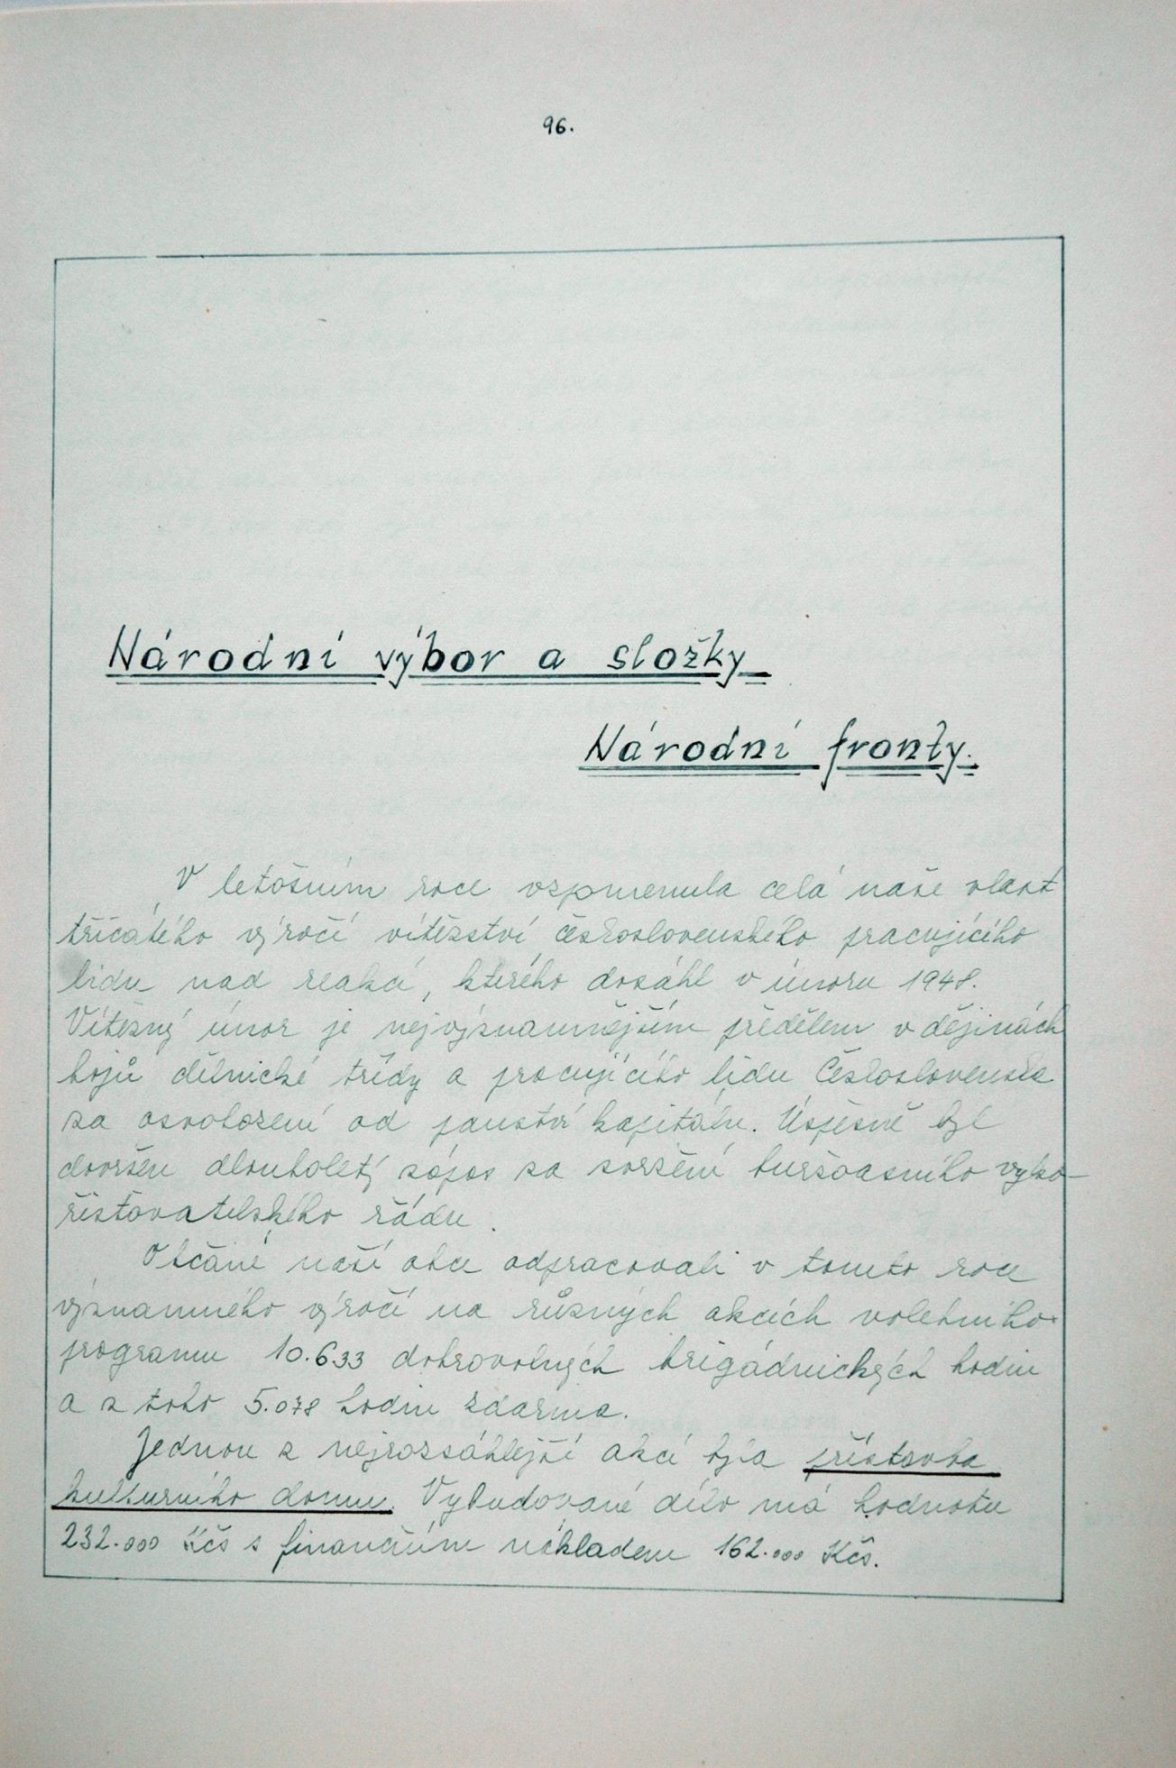 96.
Národní výbor a složky
Národní fronty.
V letošním roce vzpomenula celá naše vlast
třicátého výročí vítězství československého pracujícího
lidu nad reakcí, kterého dosáhl v únoru 1948.
Vítězný únor je nejvýznamnějším předělem v dějinách
bojů dělnické třídy a pracujícího lidu Československa
za osvobození od panství kapitálu. Úspěšně byl
dovršen dlouholetý zápas za svržení buržoasního vyko-
řisťovatelského řádu.
Občané naší obce odpracovali v tomto roce
významného výročí na různých akcích volebního
programu 10.633 dobrovolných brigádnických hodin
a z toho 5.078 hodin zdarma.
Jednou z nejrozsáhlejší akcí byla přístavba
kulturního domu. Vybudované dílo má hodnotu
232.000 Kčs s finančním nákladem 162.000 Kčs.